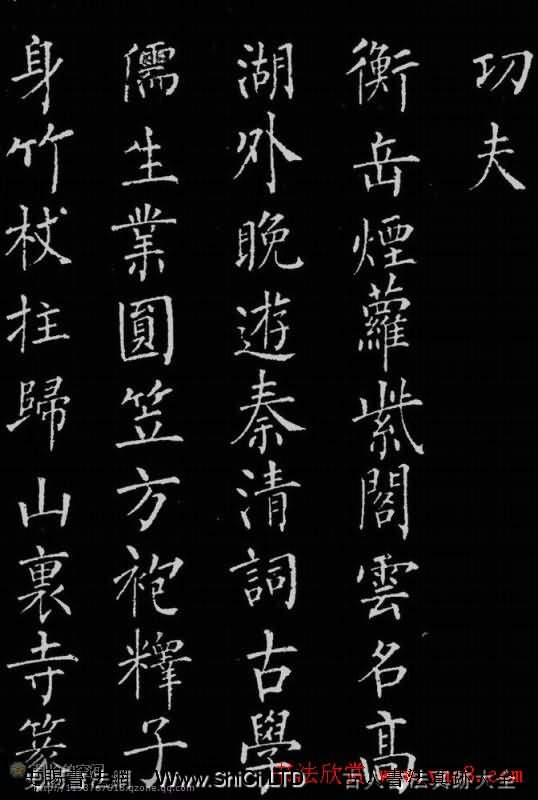 功夫
衡岳煙蘿紫閣雲名高
湖外晚遊秦清詞古學
儒生業圓笠方袍釋子
身竹杖拄歸山裏寺
www.ShiCi.LTD
书法欣赏
古人書法真跡大全